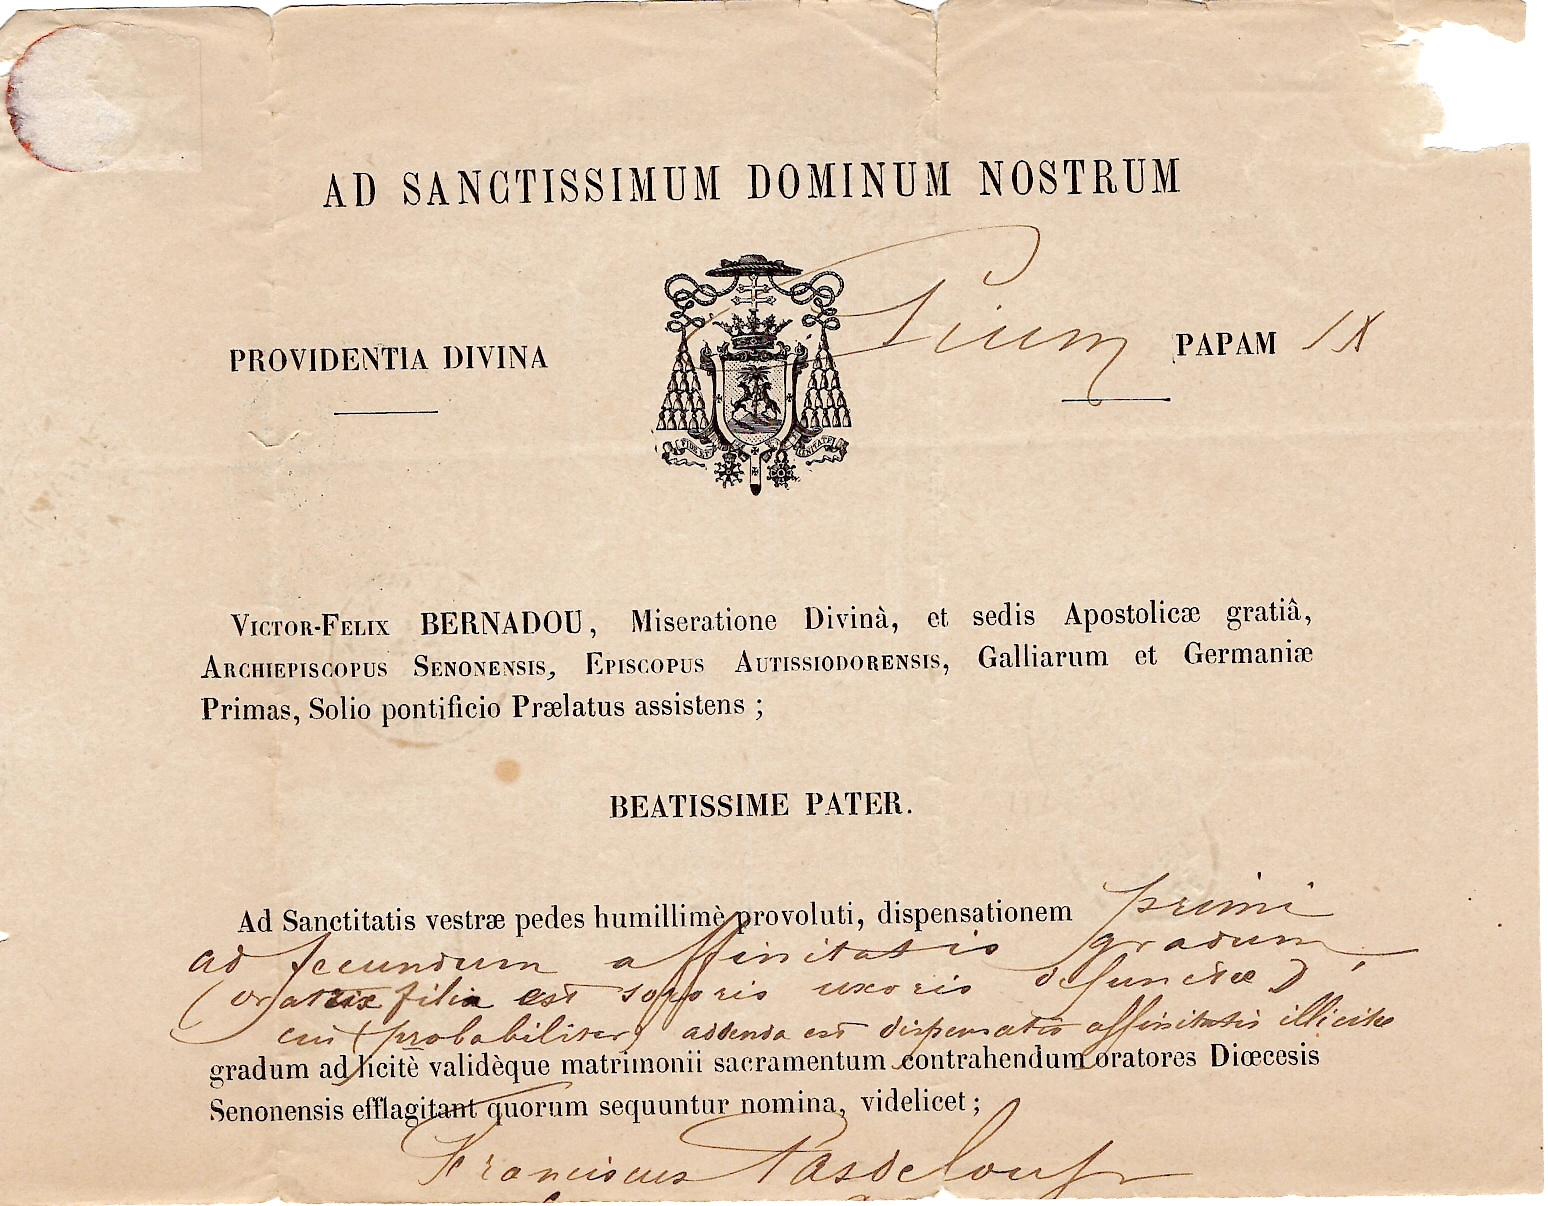 AD SANCTISSIMUM DOMINUM NOSTRUM
PROVIDENTIA DIVINA Pium PAPAM IX
VICTOR-FELIX BERNADOU, Miseratione Divinà, et sedis Apostolicæ gratiâ,
ARCHIEPISCOPUS SENONENSIS, EPISCOPUS AUTISSIODORENSIS, Galliarum et Germaniæ
Primas, Solio pontificio Prælatus assistens ;
BEATISSIME PATER.
Ad Sanctitatis vestræ pedes humillimè provoluti, dispensationem primi
ad secundum affinitatis gradum,
(oratrix filia est sororis uxoris defunctæ)
cui (probabiliter) addenda est dispensatio affinitatis illicitæ
gradum ad licitè validèque matrimonii sacramentum contrahendum oratores Diœcesis
Senonensis efflagitant quorum sequuntur nomina, videlicet ;
Franciscus Pasdeloup